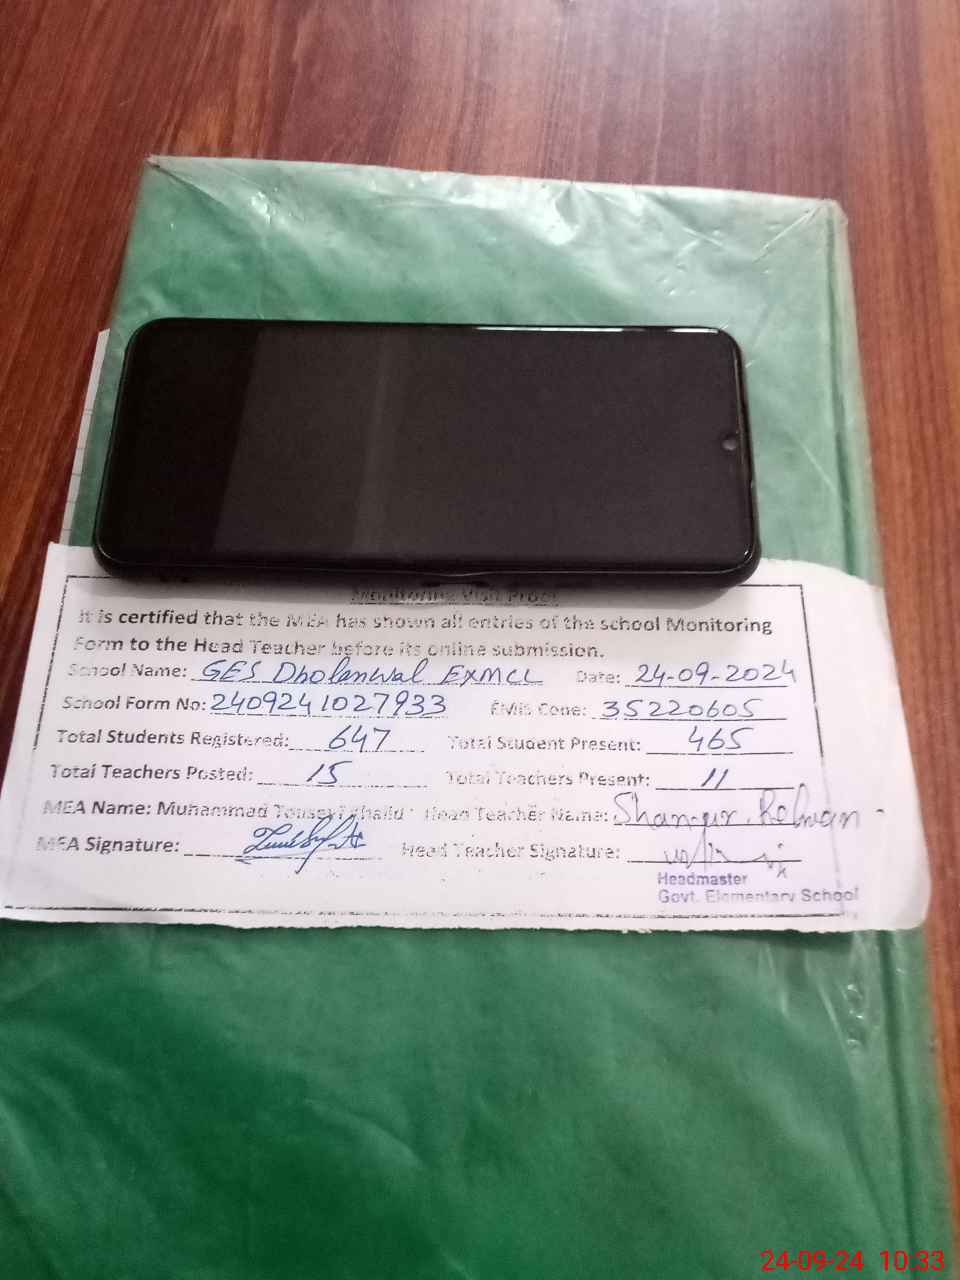 Monitoring Visit Proof
It is certified that the MEA has shown all entries of the school Monitoring
Form to the Head Teacher before its online submission.
School Name: GES Dholanwal ExMCL Date: 24-09-2024
School Form No: 2409241027933 EMIS Code: 35220605
Total Students Registered: 647 Total Student Present: 465
Total Teachers Posted: 15 Total Teachers Present: 11
MEA Name: Muhammad Khalid Head Teacher Name:
MEA Signature: Head Teacher Signature:
Headmaster
Govt. Elementary School
24-09-24 10:33